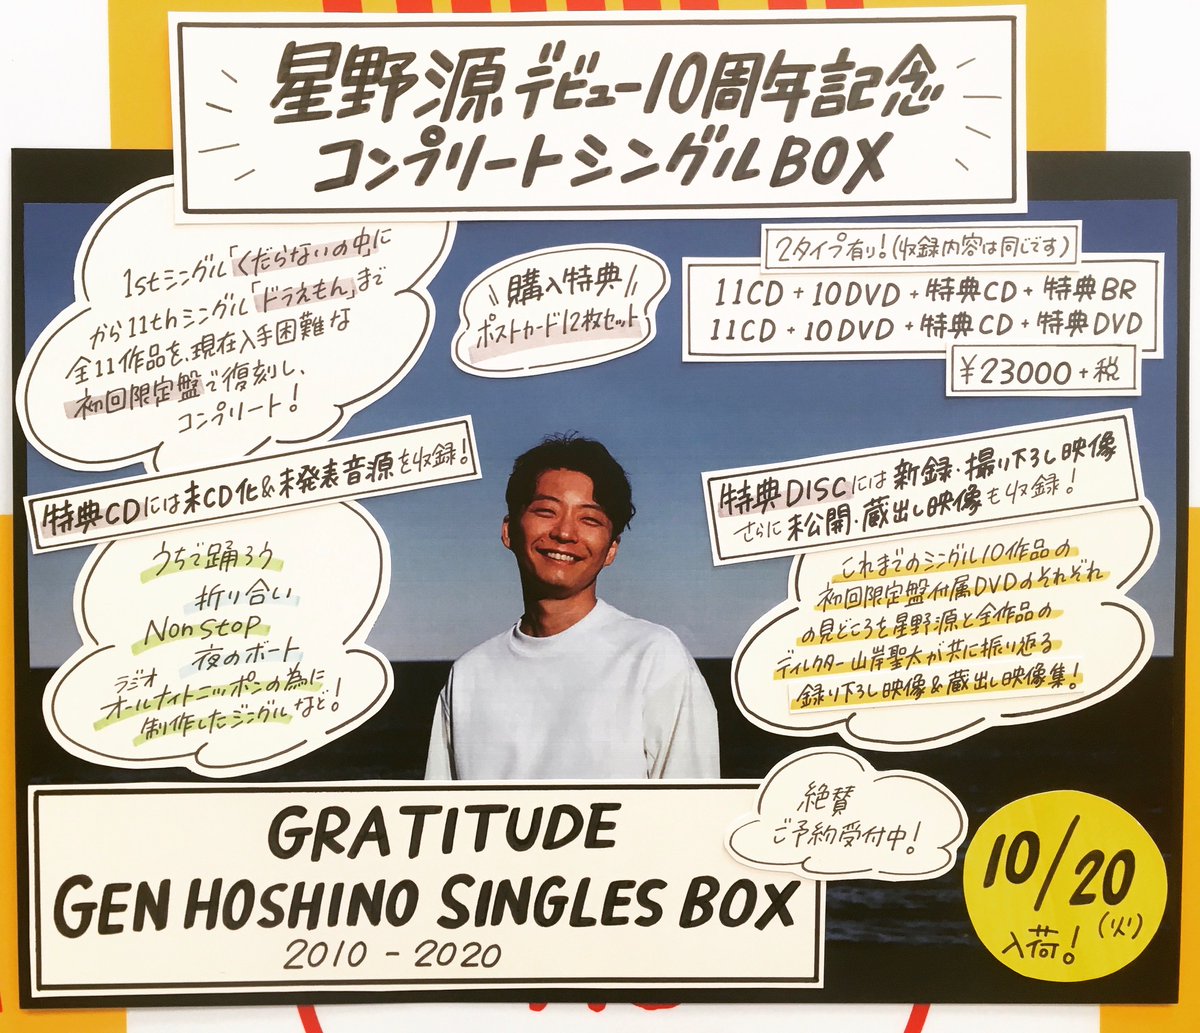 星野源デビュー10周年記念
コンプリートシングルBOX
1stシングル「くだらないの中に」
から11thシングル「ドラえもん」まで
全11作品を、現在入手困難な
初回限定盤で復刻し、
コンプリート!
購入特典
ポストカード12枚セット
2タイプ有り!(収録内容は同じです)
11CD+10DVD+特典CD+特典BR
11CD+10DVD+特典CD+特典DVD
¥23000+税
特典CDには未CD化&未発表音源を収録!
うちで踊ろう
折り合い
Non Stop
夜のボート
ラジオ
オールナイトニッポンの為に
制作したジングルなど!
特典DISCには新録・撮り下ろし映像
さらに未公開・蔵出し映像も収録!
これまでのシングル10作品の
初回限定盤付属DVDのそれぞれ
の見どころを星野源と全作品の
ディレクター山岸聖太が共に振り返る
録り下ろし映像&蔵出し映像集!
絶賛
ご予約受付中!
GRATITUDE
GEN HOSHINO SINGLES BOX
2010-2020
10/20
(火)
入荷!